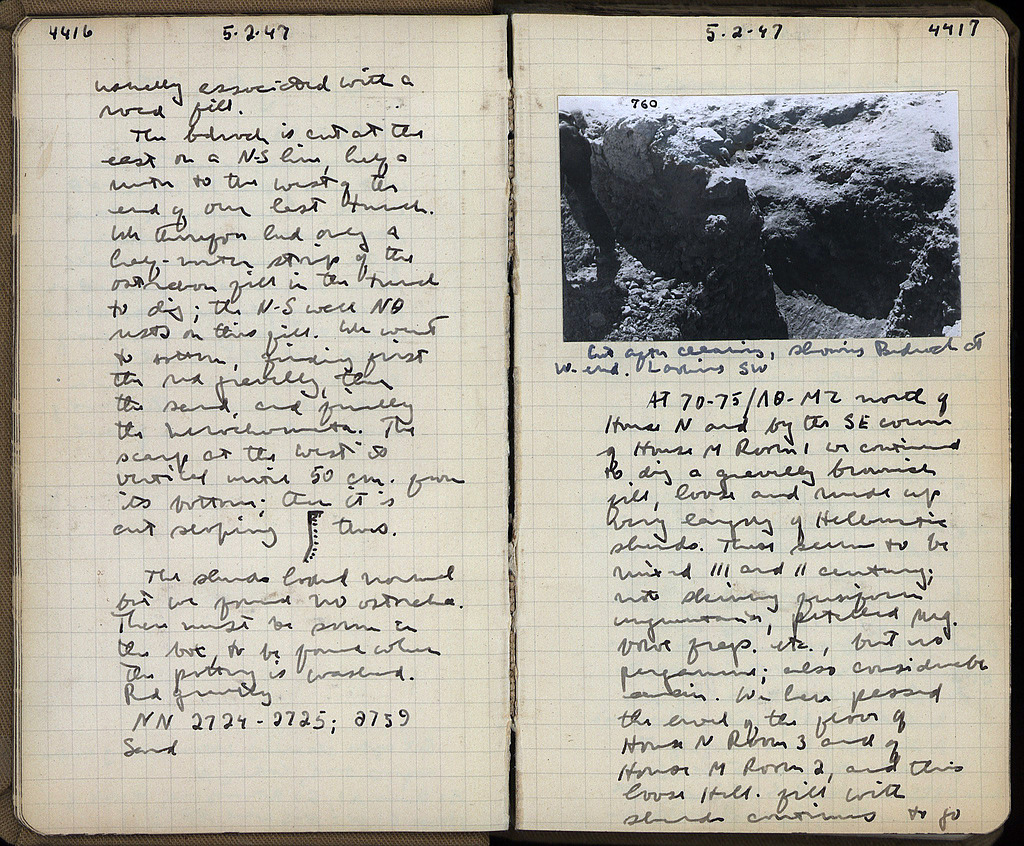 4416
5·2·47
usually associated with a
road fill.
The bedrock is cut at the
east on a N-S line, half a
meter to the west of the
end of our last trench.
We therefore had only a
half-meter strip of the
ostrakon fill in the trench
to dig; the N-S wall NΘ
rests on this fill. We went
to bottom, finding first
the red gravelly, then
the sand, and finally
the
The
scarp at the west is
vertical until 50 cm. from
its bottom; then it is
cut sloping thus.
The sherds looked normal
but we found no ostraka.
There must be some in
the box, to be found when
the pottery is washed.
Red gravelly
NN 2724-2725; 2759
Sand
5·2·47
4417
760
Cut after clearing, showing Bedrock at
W. end. Looking SW
AT 70-75/ΛΘ-ΜΖ north of
House N and by the SE corner
of House M Room 1 we continued
to dig a gravelly brownish
fill, loose and made up
very largely of Hellenistic
sherds. These seem to be
mixed III and II century;
fusiform
unguentaria, Meg.
bowl frags. etc., but no
pergamene; also considerable
We have passed
the level of the floor of
House N Room 3 and of
House M Room 2, and this
loose Hell. fill with
sherds continues to go